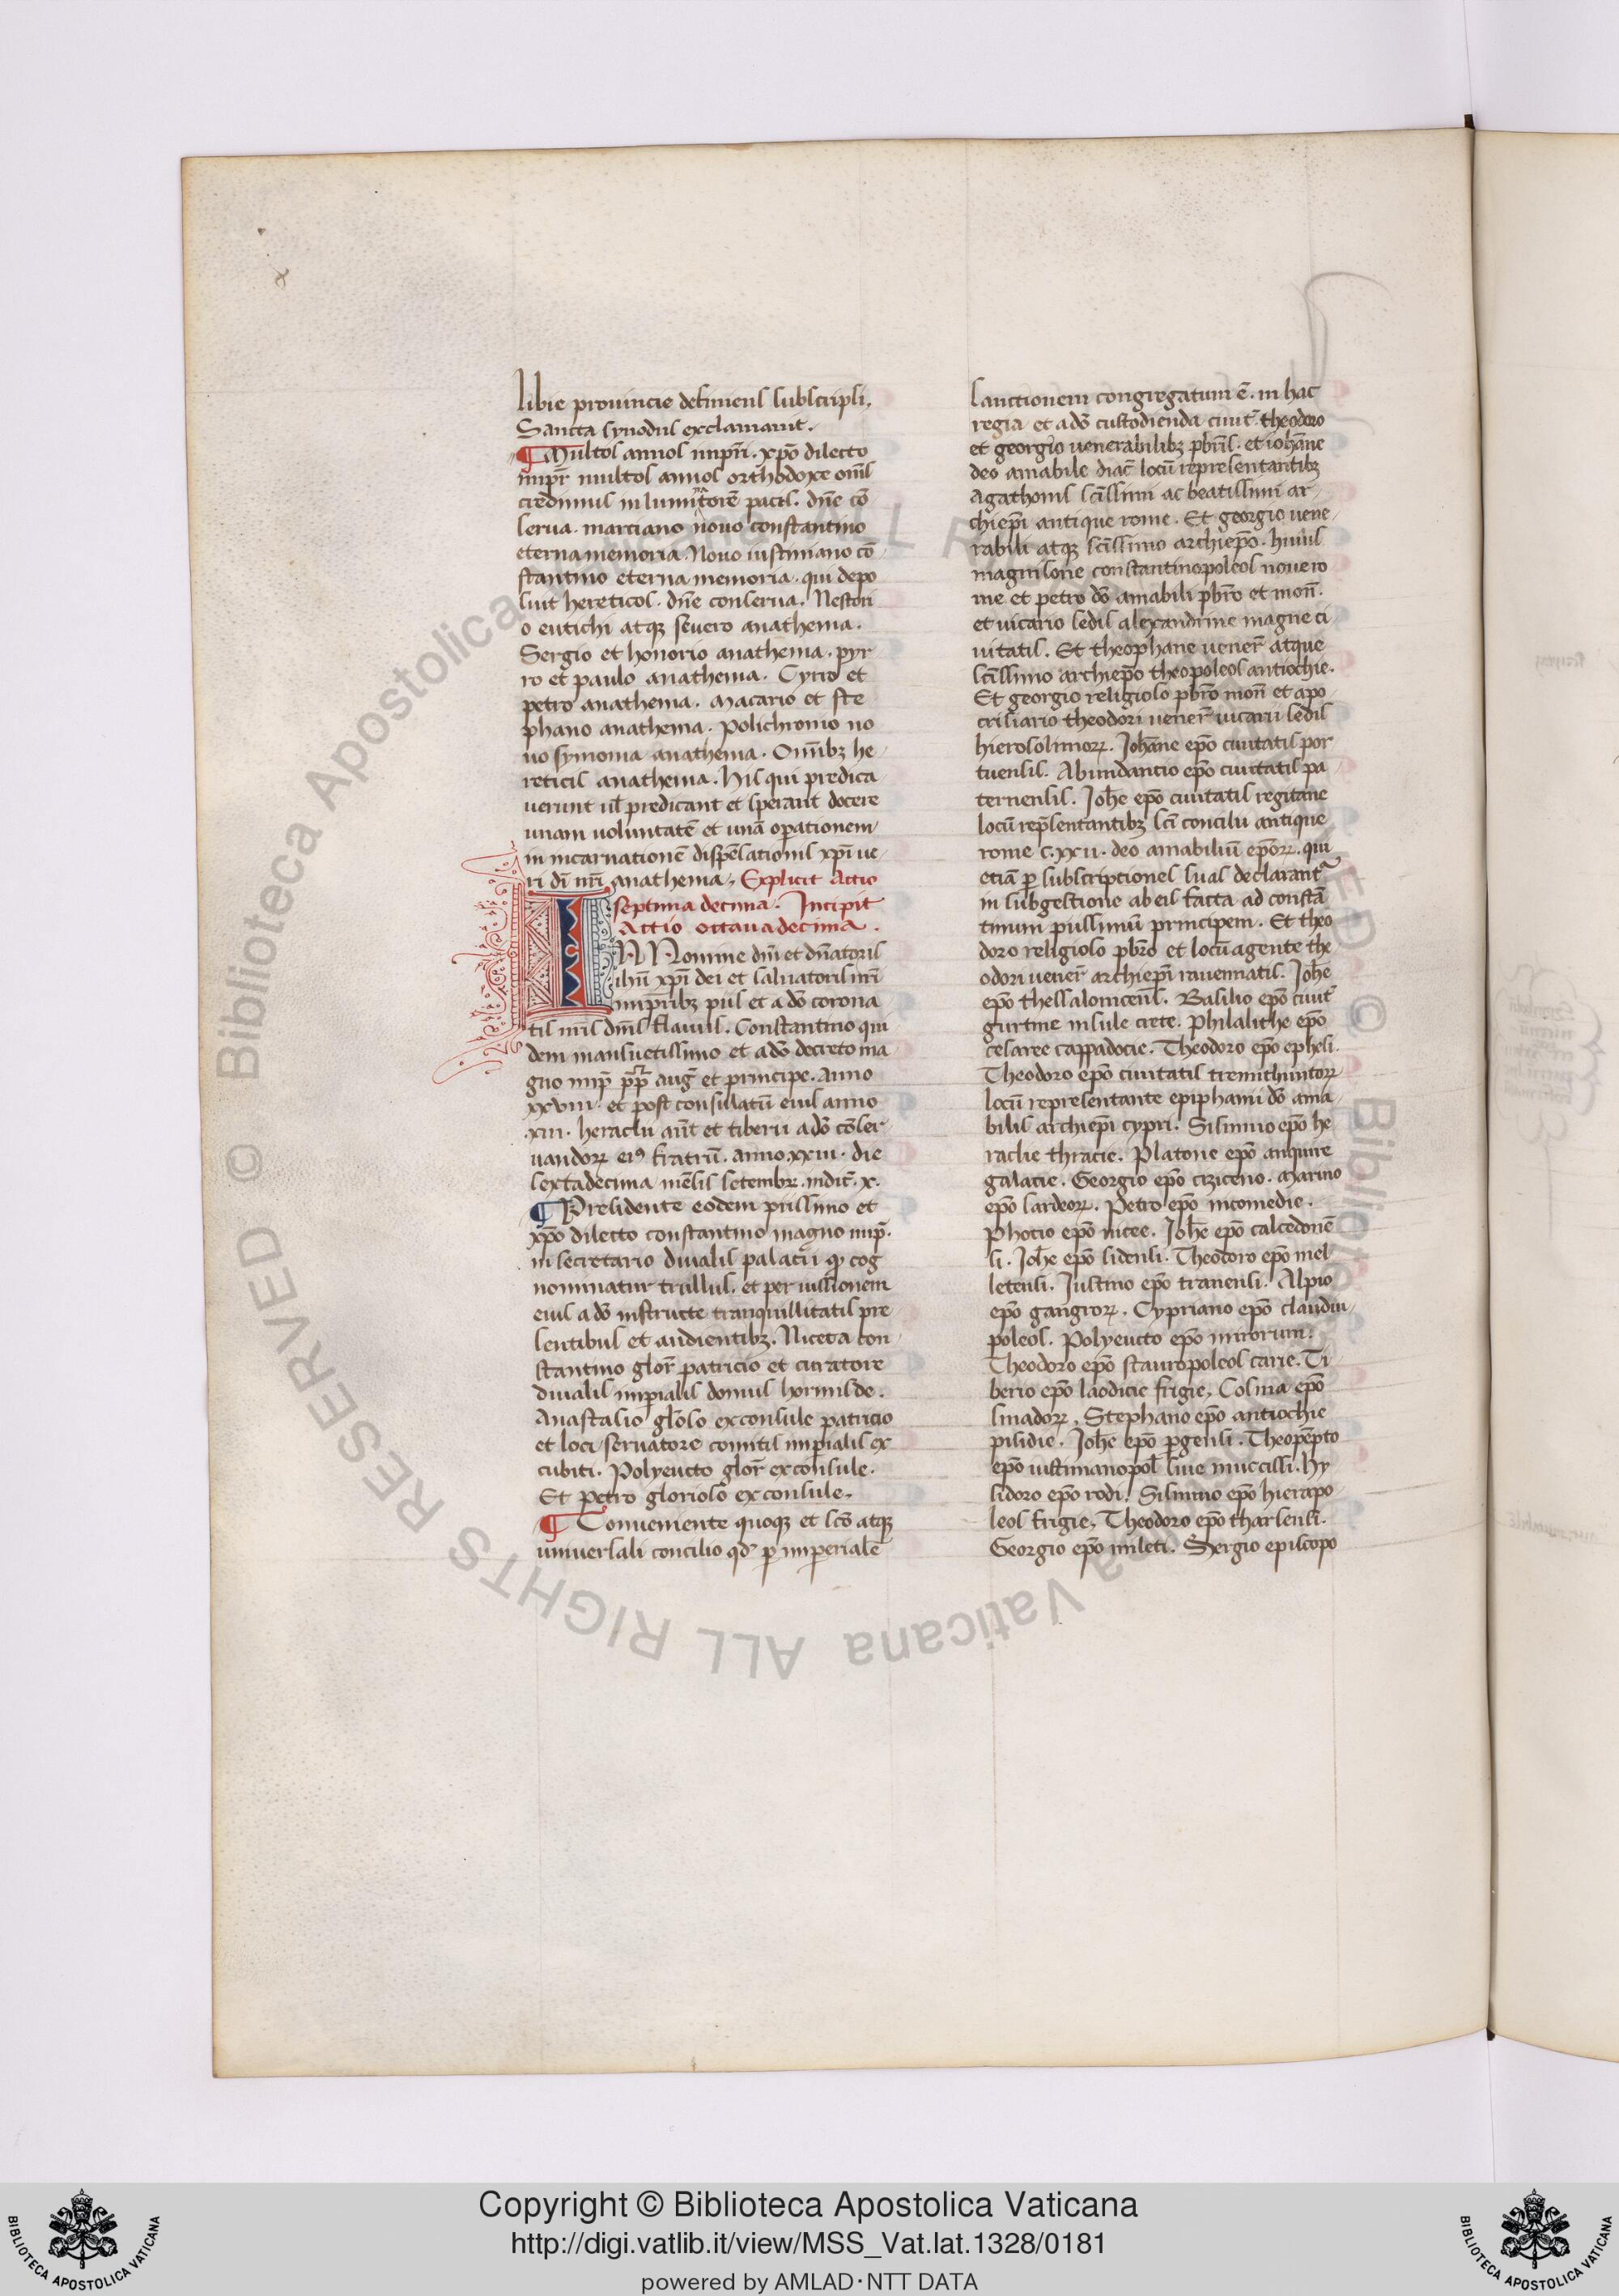 libie prouincie definiens subscripsi.
Sancta synodus exclamauit.
¶ Multos annos imp̄ri. xp̄o dilecto
imp̄r multos annos orthodoxe om̄s
credimus in luminatorē pacis. dn̄e cō
serua. marciano nouo constantino
eterna memoria. Nouo iustiniano cō
stantino eterna memoria. qui depo
suit hereticos. dn̄e conserua. Nestori
o eutichi atqꝫ seuero anathema.
Sergio et honorio anathema. pyr
ro et paulo anathema. Cyro et
petro anathema. Macario et ste
phano anathema. Polichronio no
uo symonia anathema. Om̄ibꝫ he
reticis anathema. His qui predica
uerunt ul̄ predicant et sperant docere
unam uoluntatē et unā oꝑationem
in incarnationē dispēsationis xp̄i ue
ri dī nr̄i anathema. Explicit Actio
septima decima. Incipit
Actio octaua decima.
IN Nomine dn̄i et dn̄atoris
ihū xp̄i dei et saluatoris nr̄i
imp̄ribꝫ piis et a dō corona
tis nr̄is dn̄is flauiis. Constantino qui
dem mansuetissimo et a dō decreto ma
gno imp̄ p̄p̄ aug̃ et principe. anno
xxviii. et post consulatū eius anno
.xiii. heraclii aūt et tiberii a dō cōser
uandoꝝ eiꝰ fratrū. anno xxiii. die
sextadecima mēsis setembꝝ. indic̄. x.
¶ Presidente eodem piissimo et
xp̄o dilecto constantino magno imp̄.
in secretario diualis palacii qđ cog
nominatur trullus. et per iussionem
eius a dō instructe tranquillitatis pre
sentibus et audientibꝫ. Niceta con
stantino glor̄ patricio et curatore
diualis imꝑialis domus hormisde.
Anastasio gl̄oso exconsule patricio
et loci seruatore comitis imꝑialis ex
cubiti. Polyeucto glor̄ exconsule.
Et Petro glorioso exconsule.
¶ Conueniente quoqꝫ et sc̄o atqꝫ
uniuersali concilio qđ ꝑ imperialē
sanctionem congregatum ē. in hac
regia et a dō custodienda ciuit̄. theodoro
et georgio uenerabilibꝫ pbr̄is. et iohāne
deo amabile diac̄ locū representantibꝫ
agathonis sc̄issimi ac beatissimi ar
chiep̄i antique rome. Et georgio uene
rabili atqꝫ sc̄issimo archiep̄o. huius
magnisone constantinopoleos noue ro
me et petro dō amabili pbr̄o et mon̄.
et uicario sedis alexandrine magne ci
uitatis. Et theophane uener̄ atque
sc̄issimo archiep̄o theopoleos antiochie.
Et georgio religioso pbr̄o mon̄ et apo
crisiario theodori uener̄ uicarii sedis
hierosolimoꝝ. Iohāne ep̄o ciuitatis por
tuensis. Abundancio ep̄o ciuitatis pa
ternensis. Ioh̄e ep̄o ciuitatis regitane
locū rep̄sentantibꝫ sc̄i concilii antique
rome c.xxii. deo amabiliū ep̄oꝝ. qui
etiā ꝑ subscriptiones suas declarant̄
in subgestione ab eis facta ad constā
tinum piissimū principem. Et theo
doro religioso pbr̄o et locū agente the
odori uener̄ archiep̄i rauennatis. Ioh̄e
ep̄o thessalonicens̄. Basilio ep̄o ciuit̄
gurtine insule crete. Philalithe ep̄o
cesaree cappadocie. Theodoro ep̄o ephesi.
Theodoro ep̄o ciuitatis tremithuntoꝝ
locū representante epiphanii dō ama
bilis archiep̄i cypri. Sisinnio ep̄o he
raclie thracie. Platone ep̄o anquire
galacie. Georgio ep̄o ciziceno. Marino
ep̄o sardeoꝝ. Petro ep̄o nicomedie.
Phocio ep̄o nicee. Ioh̄e ep̄o calcedonē
si. Ioh̄e ep̄o sidensi. Theodoro ep̄o mel
letensi. Iustino ep̄o tranensi. Alpio
ep̄o gangroꝝ. Cypriano ep̄o claudiu
poleos. Polyeucto ep̄o mirorum.
Theodoro ep̄o stauropoleos carie. Ti
berio ep̄o laodicie frigie. Cosma ep̄o
sinadoꝝ. Stephano ep̄o antiochie
pisidie. Ioh̄e ep̄o ꝑgensi. Theopēpto
ep̄o iustinianopol̄ siue muccissi. hy
sidoro ep̄o rodi. Sisinnio ep̄o hierapo
leos frigie. Theodoro ep̄o tharsensi.
Georgio ep̄o mileti. Sergio episcopo
Copyright © Biblioteca Apostolica Vaticana
http://digi.vatlib.it/view/MSS_Vat.lat.1328/0181
powered by AMLAD·NTT DATA
BIBLIOTECA APOSTOLICA VATICANA
BIBLIOTECA APOSTOLICA VATICANA
© Biblioteca Apostolica Vaticana ALL RIGHTS RESERVED